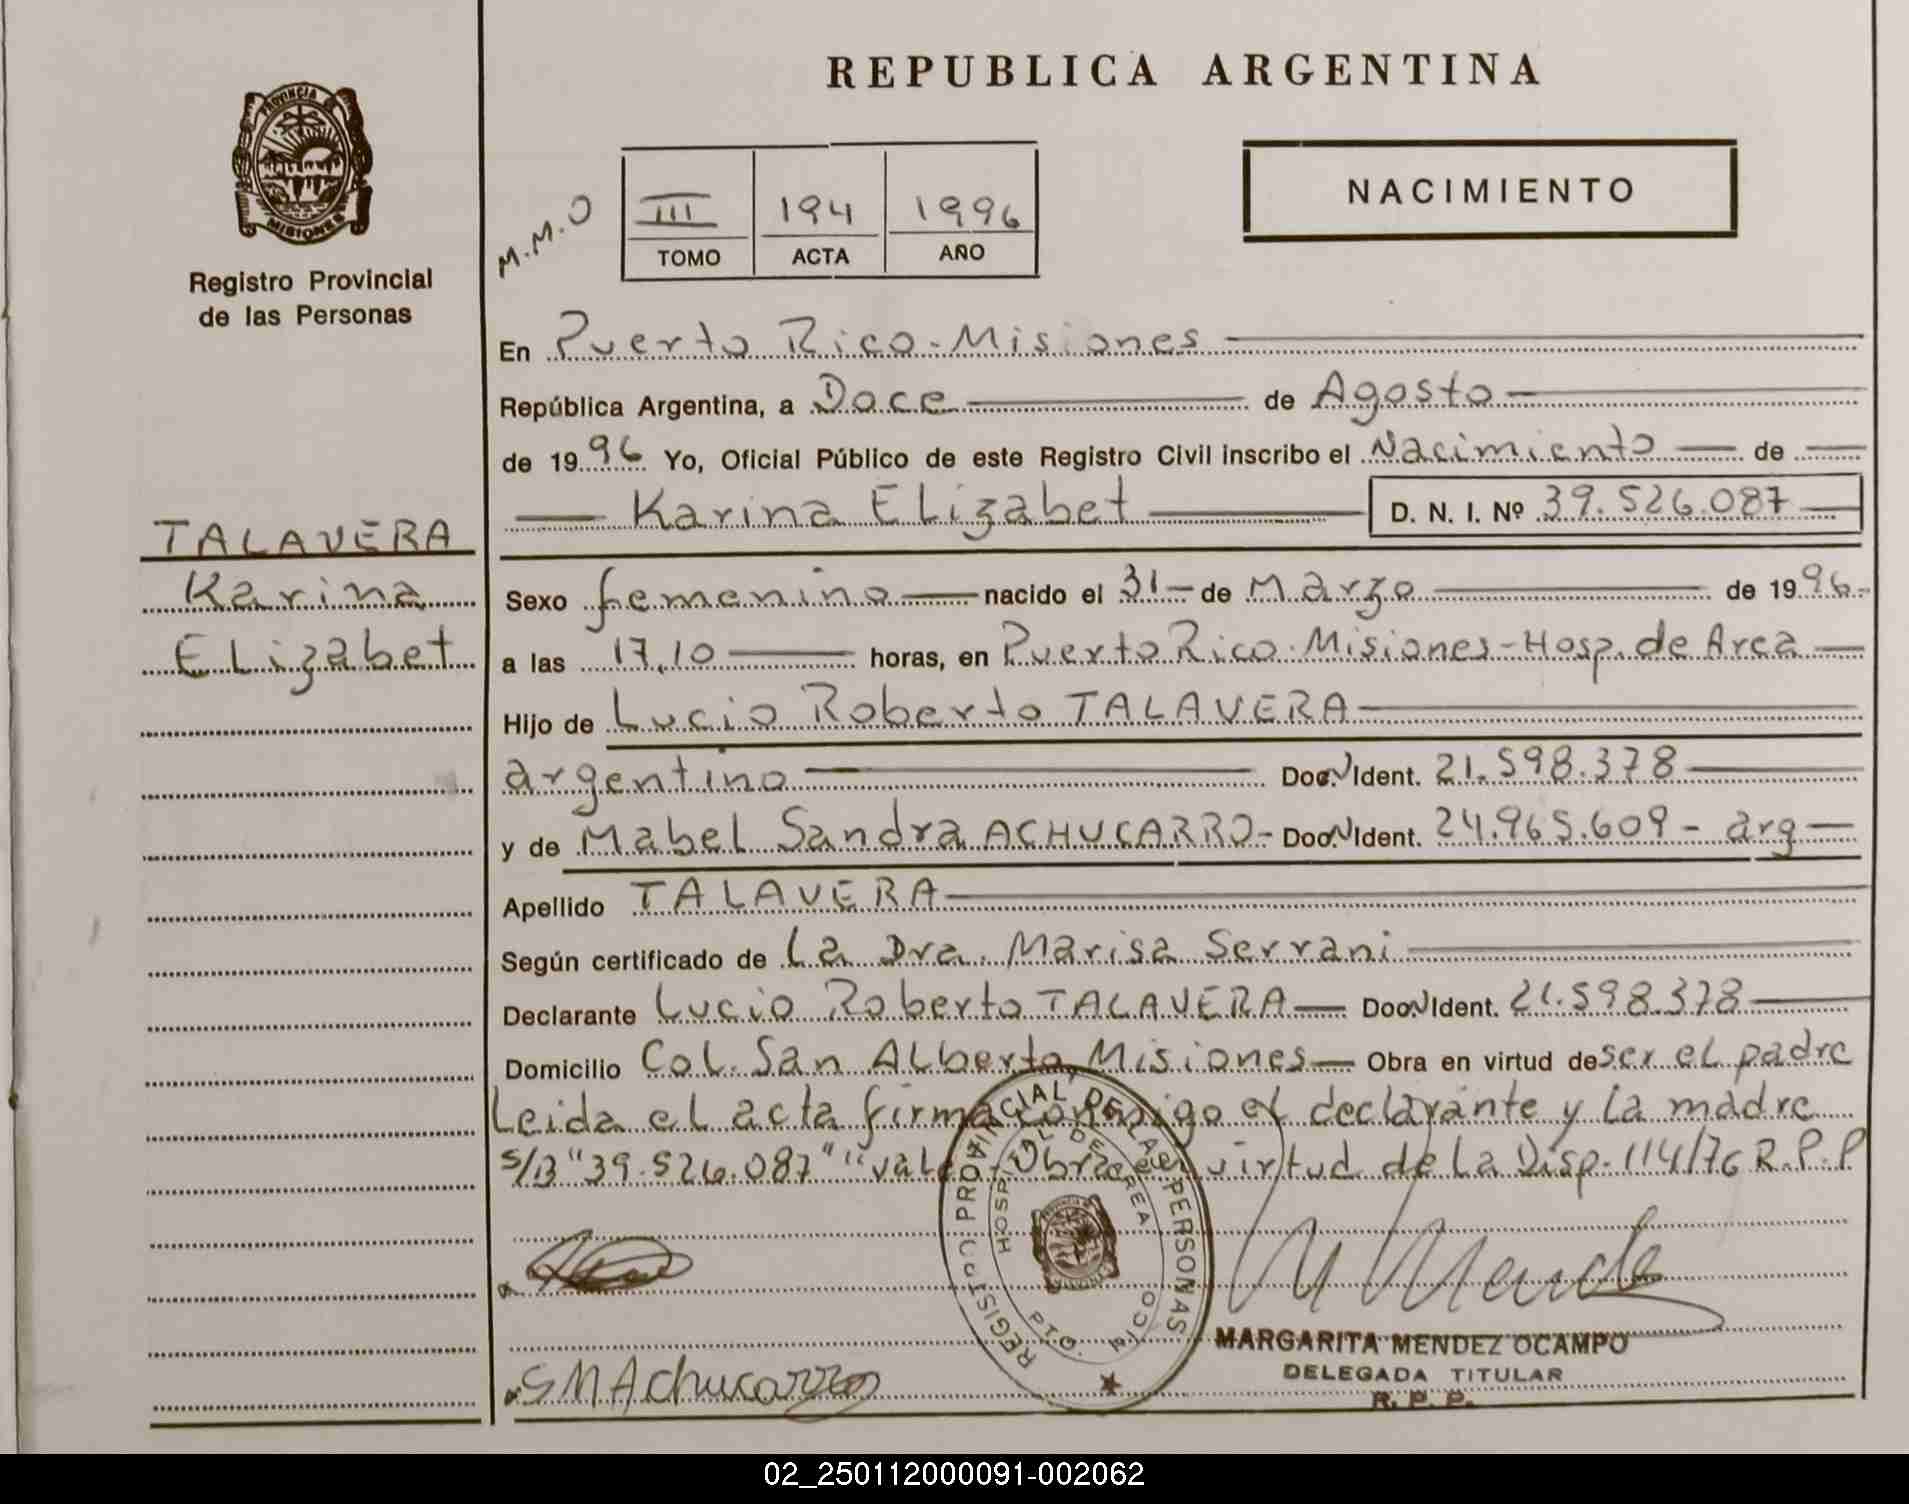 REPUBLICA ARGENTINA
PROVINCIA DE
MISIONES
Registro Provincial
de las Personas
NACIMIENTO
M.M.O
III 194 1996
TOMO ACTA AÑO
En Puerto Rico - Misiones
República Argentina, a Doce de Agosto
de 1996 Yo, Oficial Público de este Registro Civil inscribo el Nacimiento de
Karina ELizabet D. N. I. Nº 39.526.087
TALAVERA
Karina
ELizabet
Sexo femenino nacido el 31 de Marzo de 1996
a las 17,10 horas, en Puerto Rico - Misiones - Hosp. de Area
Hijo de Lucio Roberto TALAVERA
argentino Doc. Ident. 21.598.378
y de Mabel Sandra ACHUCARRO - Doc. Ident. 24.965.609 - arg
Apellido TALAVERA
Según certificado de La Dra. Marisa Serrani
Declarante Lucio Roberto TALAVERA Doc. Ident. 21.598.378
Domicilio Col. San ALberto, Misiones Obra en virtud de ser el padre
Leida el acta firma conmigo el declarante y la madre
s/B "39.526.087" "vale" Obra en virtud de la Disp. 114/76 R.P.P
REGISTRO PROVINCIAL DE LAS PERSONAS
HOSPITAL DE AREA
PTO. RICO
M Mende
MARGARITA MENDEZ OCAMPO
DELEGADA TITULAR
R. P. P.
SMAchucarro
02_250112000091-002062